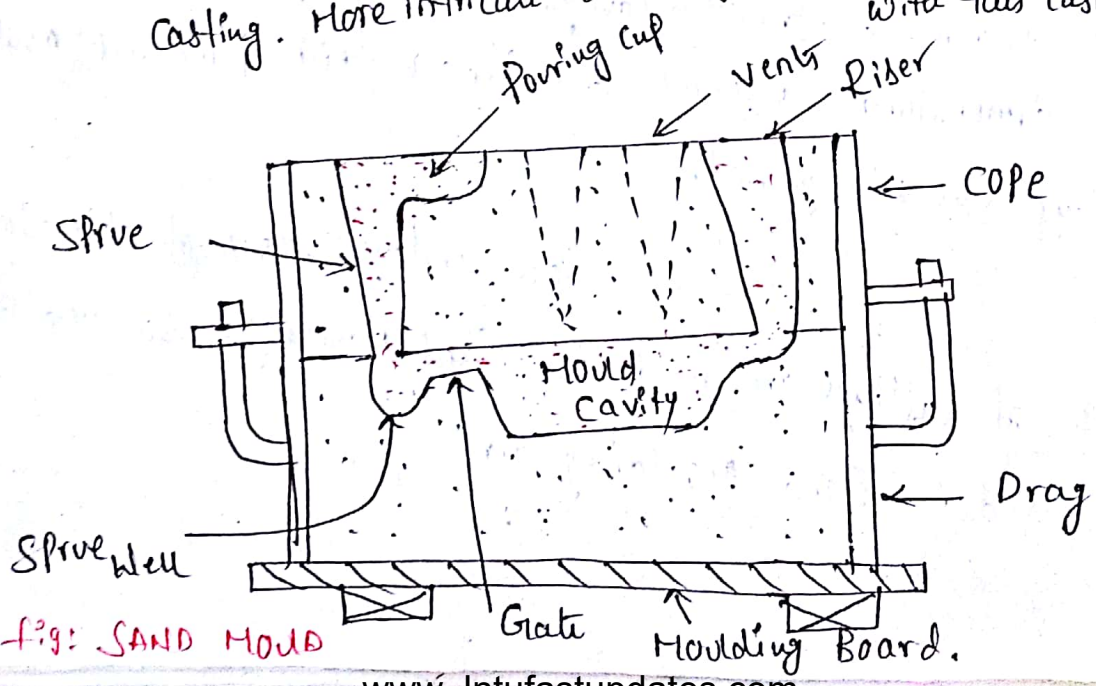 Casting. More
With this
Pouring Cup
Vents
Riser
COPE
Sprue
Mould
Cavity
Drag
Sprue Well
Gate
Moulding Board.
fig: SAND MOULD
www.Jntufastupdates.com